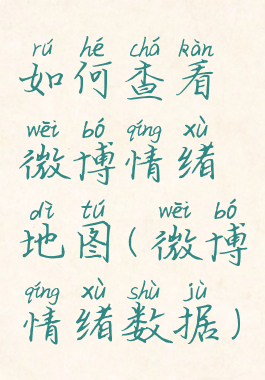 rú hé chá kàn
如何查看
wēi bó qíng xù
微博情绪
dì tú wēi bó
地图(微博
qíng xù shù jù
情绪数据)